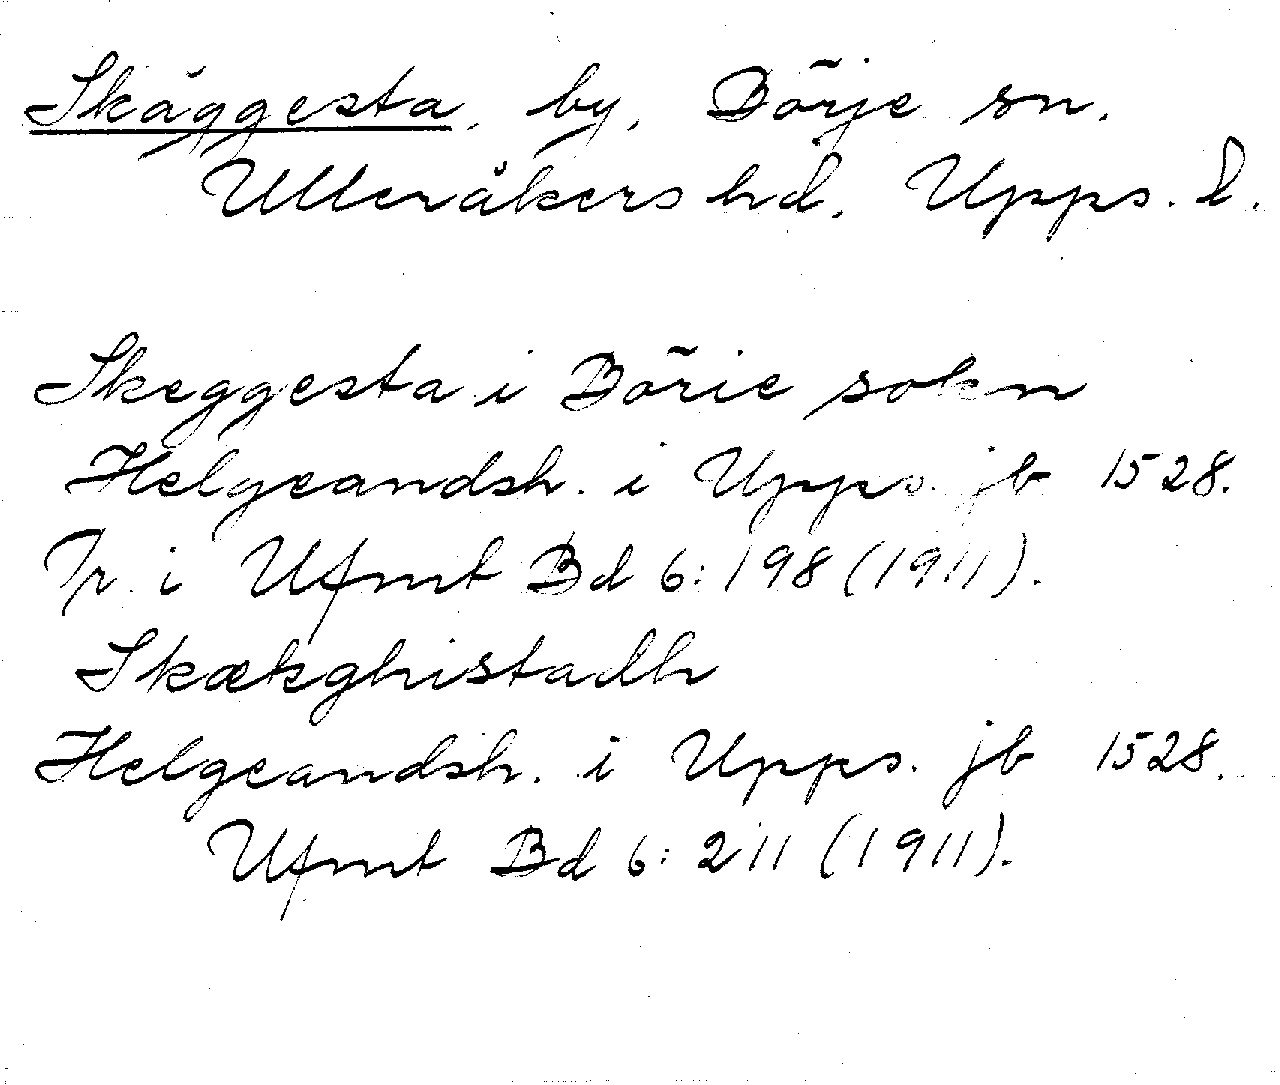 Skäggesta, by, Börje sn.
Ulleråkers hd, Upps. l.
Skeggesta i Börie sokn
Helgeandsh. i Upps. jb 1528.
Tr. i Ufmt Bd 6:198 (1911).
Skækghistadh
Helgeandsh. i Upps. jb 1528.
Ufmt Bd 6:211 (1911).